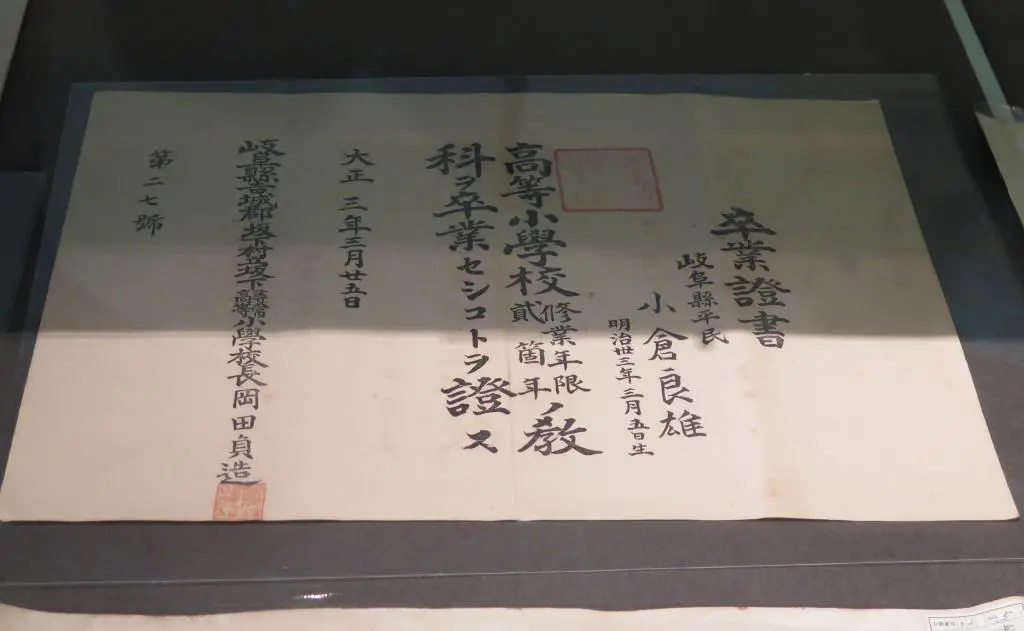 卒業證書
岐阜縣平民
小倉良雄
明治卅三年三月五日生
高等小學校修業年限貳箇年ノ教
科ヲ卒業セシコトヲ證ス
大正三年三月廿五日
岐阜縣吉城郡坂下村坂下尋常高等小學校長岡田貞造
第二七號